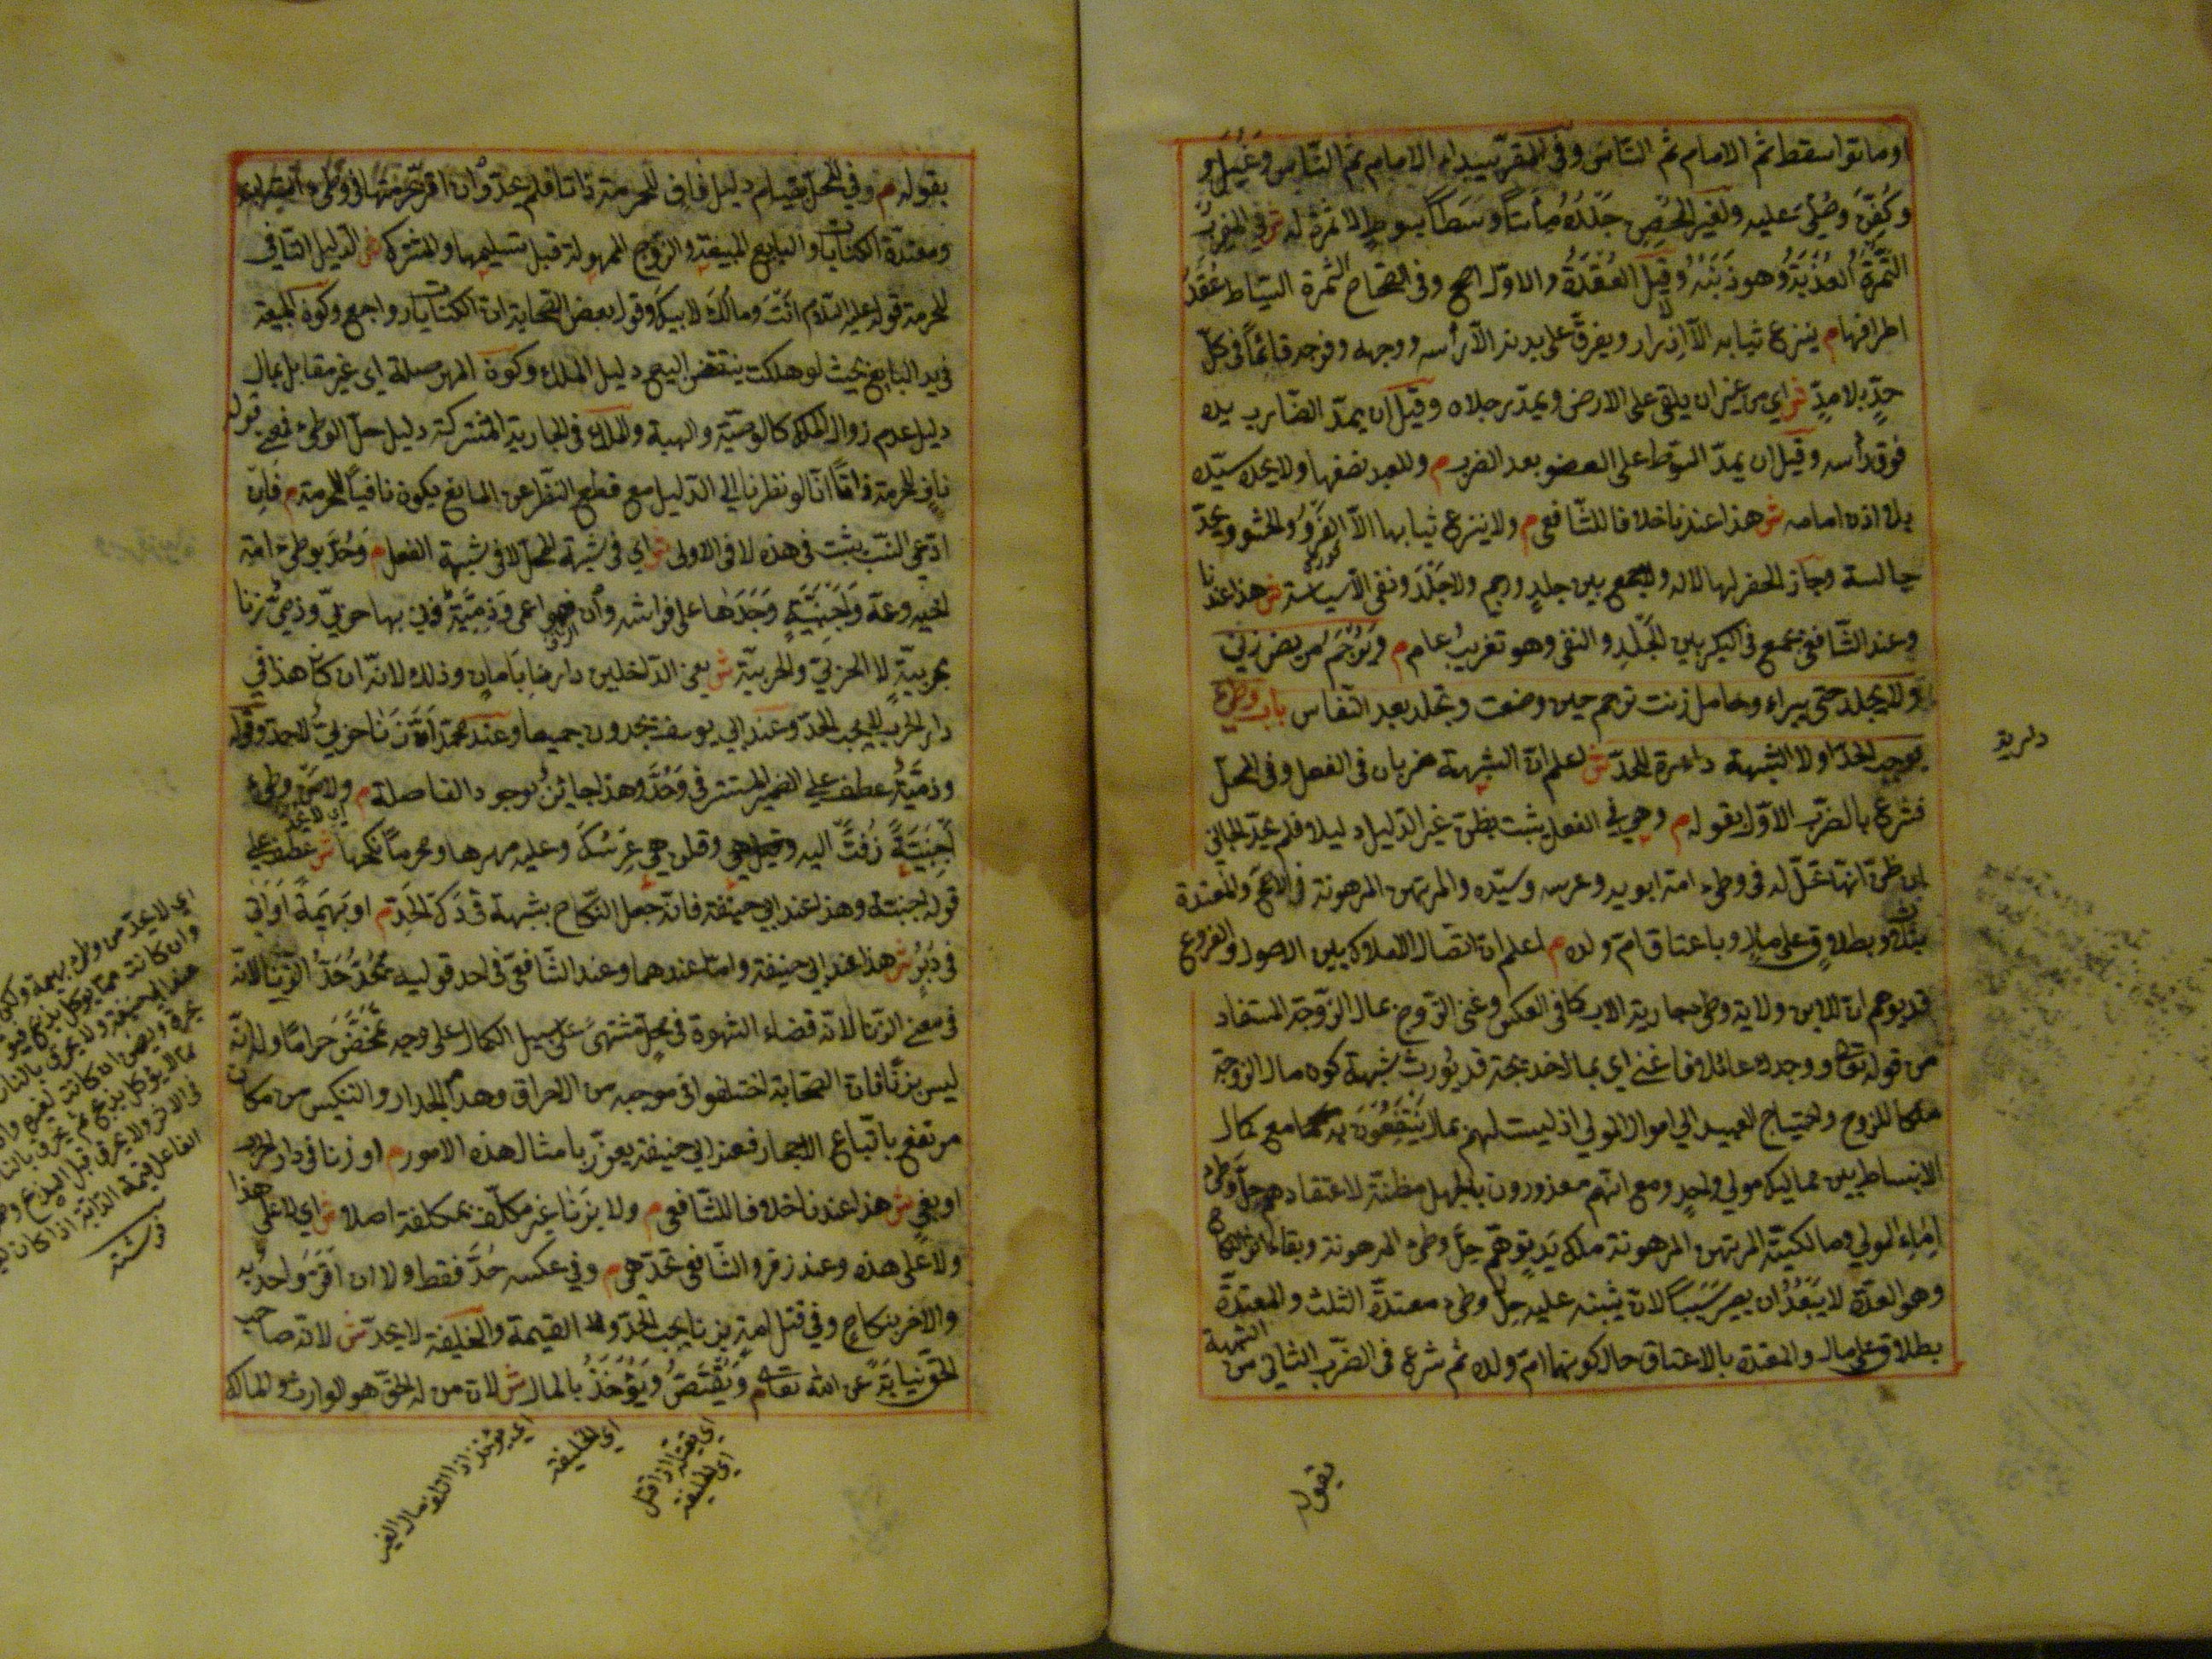 او ماتوا سقط ثم الامام ثم النّاس وفى المقرّ يبداء الامام ثم النّاس وغُسِلَ و
وكُفِّنَ وصُلّىَ عليه ولغير المحصِن جَلدُهُ مِأتًا وسَطًا بسوطٍ لا ثمرةَ له ش فى المغرب
الثَّمَرَةُ العَذَبَةُ وهو ذَنَبُهُ وقيل العُقْدَةُ والاوّل اصح وفى الصّحاح ثمرة السّياط عُقَدُ
اطرافها م ينزع ثيابه الاّ الازار ويفرق على بدنه الاّ رأسه ووجهه وفرجه قائمًا فى كلّ
حدٍّ بلا مدٍّ ش اى من غير ان يلقى على الارض ويمدّ رجلاه وقيل ان يمدّ الضّارب يده
فوق رأسه وقيل ان يمدّ السّوط على العضو بعد الضرب م وللعبد نصفها ولا يحده سيّده
بلا اذن امامه ش هذا عندنا خلافا للشّافعى م ولا ينزع ثيابها الاّ الفَرْوُ والحشو وتحدّ
جالسة وجاز الحفر لها لا له ولا يجمع بين جلدٍ ورجم ولا جَلْدَ ونفى الاّ سياسة ش هذا عندنا
وعند الشّافعى يجمع فى البكر بين الجَلْدِ والنفى وهو تغريبُ عام م ويُرْجَمُ مريض زنى
ولا يجلد حتّى يبراء وحامل زنت ترجم حين وضعت وتجلد بعد النّفاس باب وطئ
يوجب الحدّ اولا الشّبهة دارءة للحدّ ش اعلم انّ الشبهة ضربان فى الفعل وفى المحلّ
فشرع بالضّرب الاوّل بقوله م وهى فى الفعل يثبت بظنّ غير الدّليل دليلا فلم يحدّ الجانى
ان ظنّ انّها تحلّ له فى وطء امة ابويه وعرسه وسيّده والمرتهن المرهونة فى الاصحّ والمعتدة
بثلاث وبطلاقٍ على مالٍ وباعتاق امّ ولده م اعلم انّ اتّصال الاملاك بين الاصول والفروع
قد يوهم انّ للابن ولاية وطئ جارية الاب كما فى العكس وغنى الزّوج بمال الزّوجة المستفاد
من قوله تعالى ووجدك عائلا فاغنى اى بمال خديجة قد يُورث شبهة كون مال الزوجة
ملكا للزوج واحتياج العبيد الى اموال المولى اذ ليست لهم مال يَنْتَفِعُونَ به مع كمال
الانبساط بين مماليك مولى واحدٍ ومع انّهم معذورون بالجهل مظنّة لاعتقادهم حِلّ وطئ
اِمَاءِ المولى ومالكيّة المرتهن المرهونة ملك يَدٍ يوهّم حِلّ وطئ المرهونة وبقاء اثر النكاح
وهو العدّة لا يَبْعُدُ ان يصير سَبَبًا لان يثبت عليه حِلّ وطئ معتدّة الثلث والمعتدّة
بطلاق على مال والمعتدة بالاعتاق حال كونها امّ ولده ثم شرع فى الضّرب الثانى من الشبهة
درية
بقوله
بقوله م وفى المحلّ بقيام دليل ناف للحرمة ذاتا فلم يحدّ وان اقرّ بحرمتها فى وطئ امة ابنه
ومعتدّة الكنايات والبايع المبيعة والزّوج الممهورة قبل تسليمها والمشتركة ش الدليل النّافى
للحرمة قوله عليه السّلام انْتَ ومالُكَ لابيك وقول بعض الصّحابة انّ الكنايات رواجع وكون المبيعة
فى يد البايع بحيث لو هلكت ينتقض البيع دليل الملك وكون المهر صلة اى غير مقابل بمال
دليل عدم زوال الملك كالوصيّة والهبة والملك فى الجارية المشتركة دليل حلّ الوطئ فمعنى قوله
ناف للحرمة ذاتًا انّا لو نظرنا الى الدّليل مع قطع النّظر عن المانع يكون نافيًا للحرمة م فان
ادّعى النّسب يثبت فى هذه لا فى الاولى ش اى فى شبهة المحلّ لا فى شبهة الفعل م وحُدَّ بوطئ امة
اخيه وعمّه واَجْنَبِيَّةٍ وَجَدَهَا على فراشه وان هو اعمى وذِمّيّةٌ زنى بها حربىّ وذمىّ زنا
بحربيّةٍ لا الحربىّ والحربيّة ش يعنى الدّاخلين دارنا بامان وذلك لانّه ان كان هذا فى
دار الحرب لا يجب الحدّ وعند ابى يوسف يحدّون جميعا وعند محمّد ان زنا حربىّ لا يحدّ وقوله
وذميّةٌ عطف على الضمير المستتر فى وحُدَّ وهذا جائز لوجود الفاصلة م ولا من وطئ
اجنبيّةً زُفَّتْ اليه وقلن هى عِرْسُكَ وعليه مهرها ومحرمًا نكحها ش عطف على
قوله اجنبيّة وهذا عند ابى حنيفة فانّه جعل النّكاح بشبهة فى دَرْءِ الحَدِّ م او بَهِيمةً او اَتى
فى دُبُرٍ ش هذا عند ابى حنيفة وامّا عندهما وعند الشّافعىّ فى احد قوليه يُحَدُّ حَدُّ الزّنا لانّه
فى معنى الزّنا لانّه قضاء الشهوة فى محلٍّ مشتهىً على سبيل الكمال على وجه تمحَّضَ حَرامًا وله انّه
ليس بزنًا فانّ الصّحابة اختلفوا فى موجبه من الاحراق وهدم الجدار والتنكيس من مكان
مرتفع باتّباع الاحجار فعند ابى حنيفة يعزّر بامثال هذه الامور م او زنا فى دار الحرب
او بغىٍ ش هذا عندنا خلافا للشّافعى م ولا بِزَنا غير مكلّف بمكلّفة اصلا ش اى لا على هذا
ولا على هذه وعند زفر والشّافعى تحدّ هى م وفى عكسه حُدَّ فقط ولا ان اقرّ واحدٌ به
والاخر بنكاحٍ وفى قتل امةٍ بزنا يجب الحدّ والقيمة والخليفة لا يحدّ ش لانّه صاحب
الحقّ نيابةً عن الله تعالى م ويُقْتَصُّ ويُؤخَذُ بالمال ش لانّ من له الحقّ هو الوارث والمالك
اى الخليفة
اى يقتصّ اذا قتل
اى الخليفة
اى يؤخذ اذا اتلف مال الغير